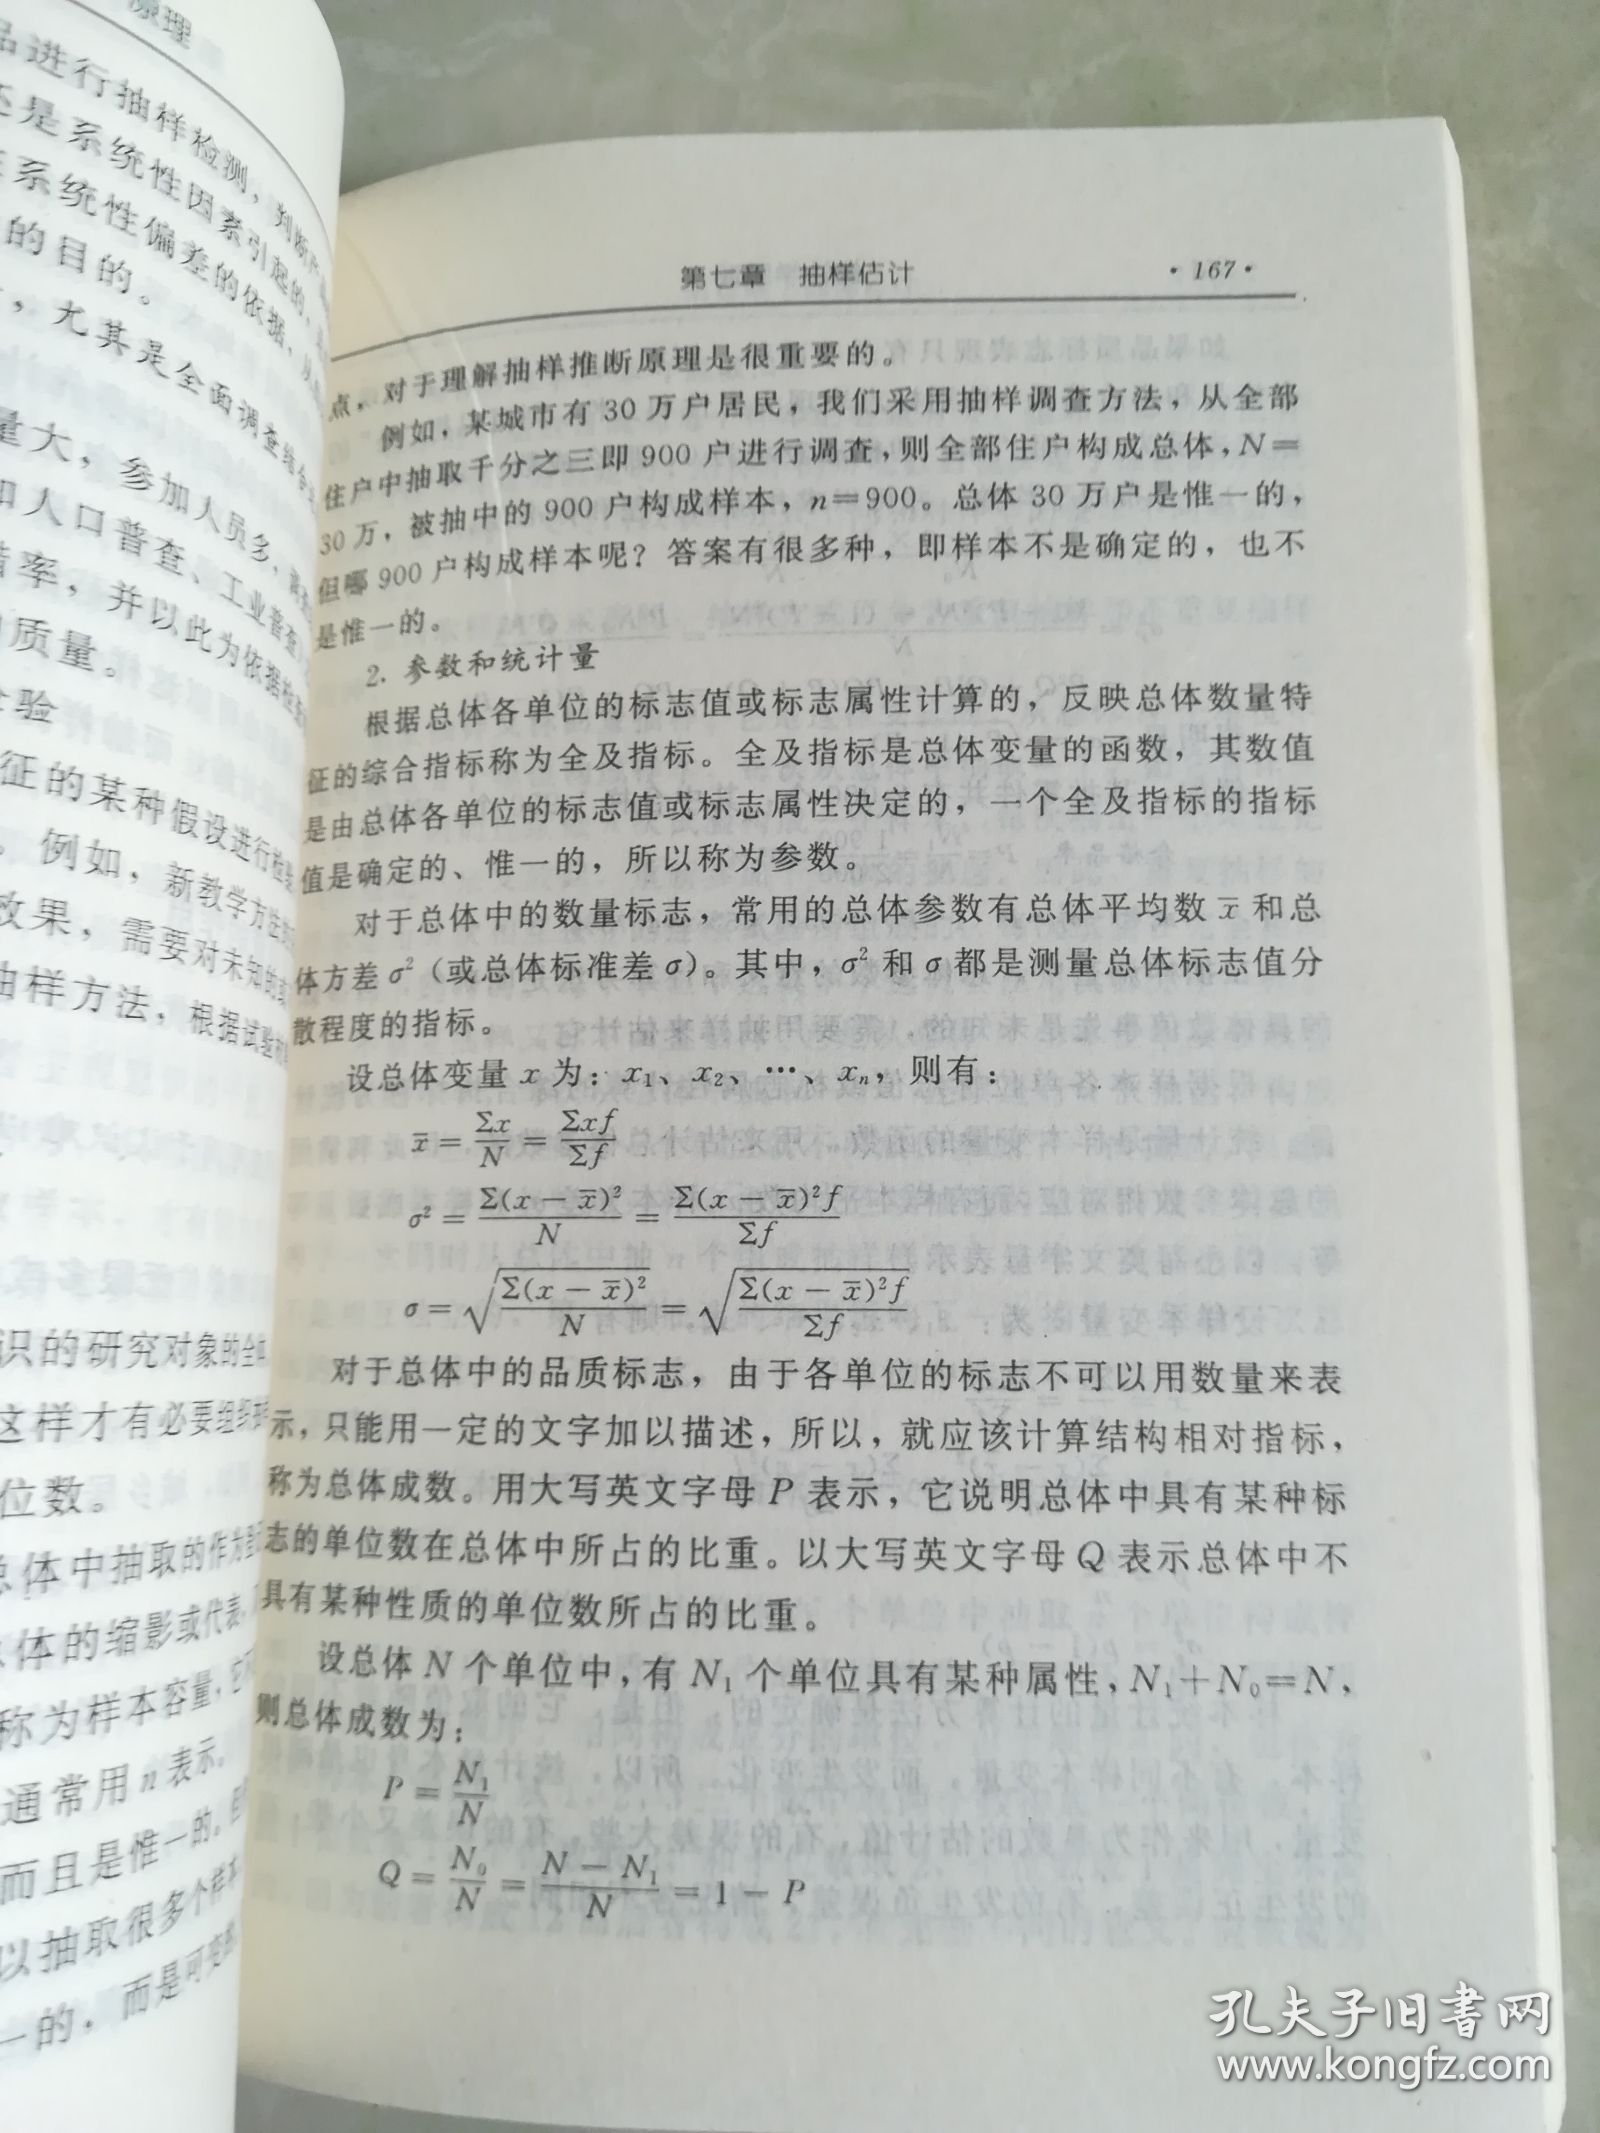 原理
品进行抽样检测，判断产
还是系统性因素引起的，
系统性偏差的依据，从
的目的。
，尤其是全面调查综合
量大，参加人员多，
如人口普查、工业普查
错率，并以此为依据检查
质量。
验
征的某种假设进行检
。例如，新教学方法
效果，需要对未知的
抽样方法，根据试验
识的研究对象的全
这样才有必要组织
位数。
总体中抽取的作为
总体的缩影或代表，
称为样本容量，它
通常用n表示。
而且是惟一的。但
以抽取很多个样本
一的，而是可变的
第七章 抽样估计 ·167·
点，对于理解抽样推断原理是很重要的。
例如，某城市有30万户居民，我们采用抽样调查方法，从全部
住户中抽取千分之三即900户进行调查，则全部住户构成总体，N＝
30万，被抽中的900户构成样本，n＝900。总体30万户是惟一的，
但哪900户构成样本呢？答案有很多种，即样本不是确定的，也不
是惟一的。
2. 参数和统计量
根据总体各单位的标志值或标志属性计算的，反映总体数量特
征的综合指标称为全及指标。全及指标是总体变量的函数，其数值
是由总体各单位的标志值或标志属性决定的，一个全及指标的指标
值是确定的、惟一的，所以称为参数。
对于总体中的数量标志，常用的总体参数有总体平均数x̄和总
体方差σ²（或总体标准差σ）。其中，σ²和σ都是测量总体标志值分
散程度的指标。
设总体变量x为：x₁、x₂、…、xₙ，则有：
x̄ = Σx/N = Σxf/Σf
σ² = Σ(x − x̄)²/N = Σ(x − x̄)²f/Σf
σ = √(Σ(x − x̄)²/N) = √(Σ(x − x̄)²f/Σf)
对于总体中的品质标志，由于各单位的标志不可以用数量来表
示，只能用一定的文字加以描述，所以，就应该计算结构相对指标，
称为总体成数。用大写英文字母P表示，它说明总体中具有某种标
志的单位数在总体中所占的比重。以大写英文字母Q表示总体中不
具有某种性质的单位数所占的比重。
设总体N个单位中，有N₁个单位具有某种属性，N₁＋N₀＝N，
则总体成数为：
P = N₁/N
Q = N₀/N = (N − N₁)/N = 1 − P
孔夫子旧书网
www.kongfz.com